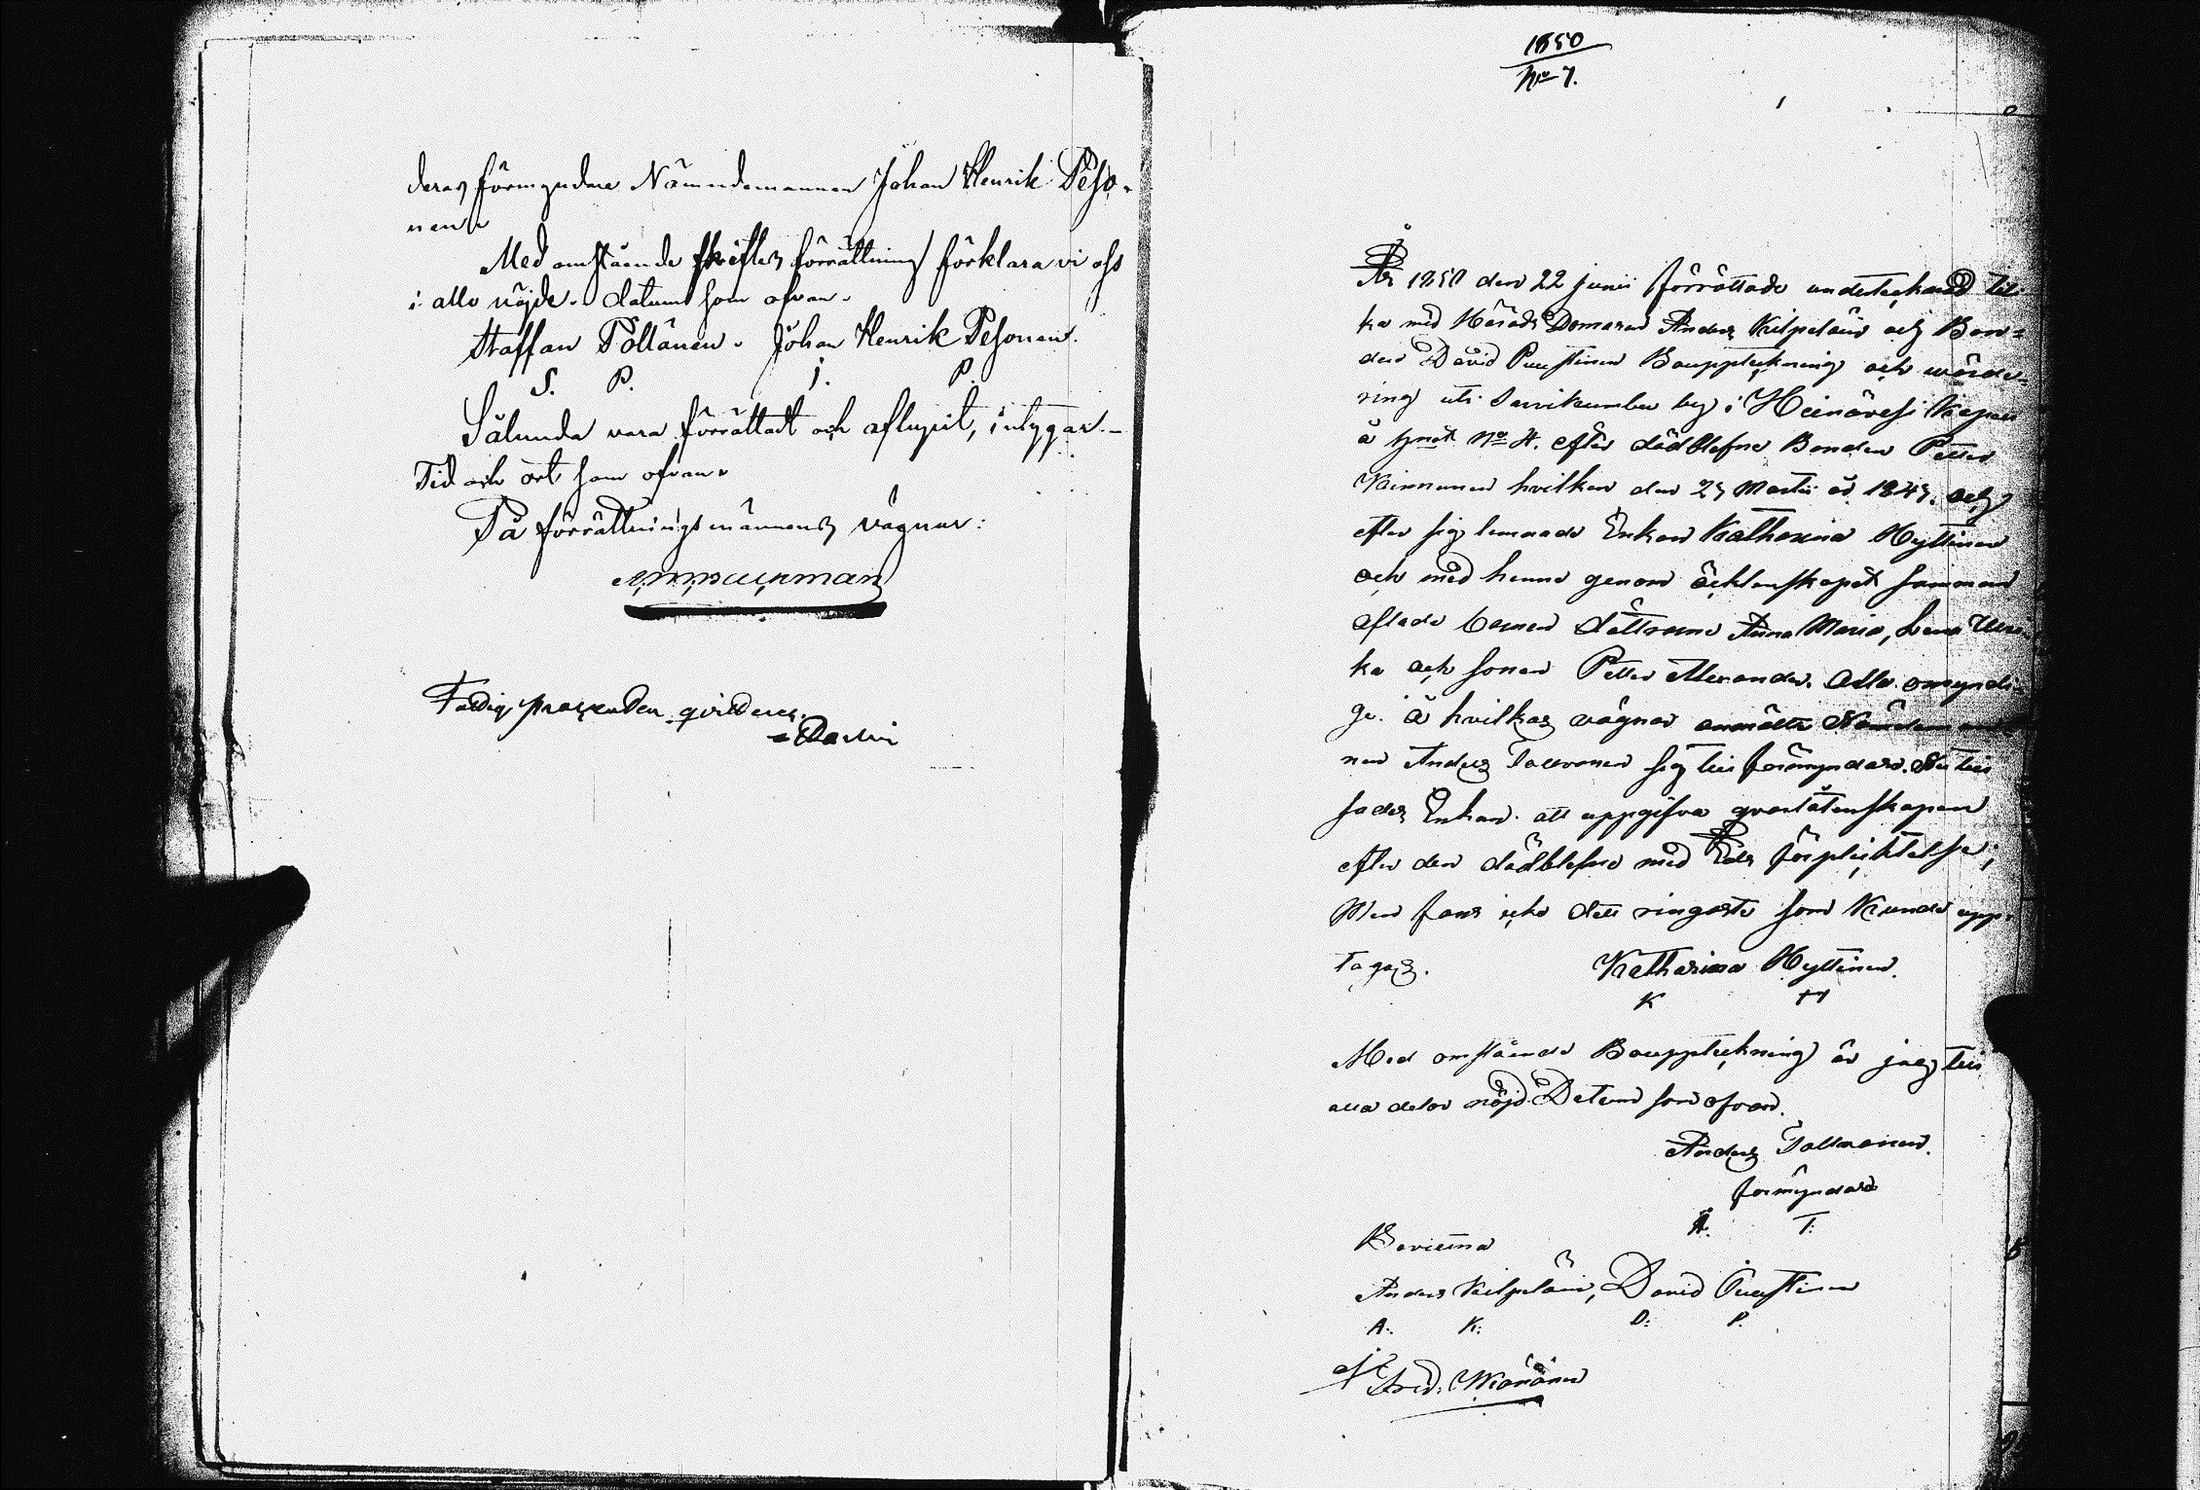 deras förmyndare Nämndemannen Johan Henrik Peso-
nen.
Med omstående skiftes förrättning förklara vi oss
i allo nöjde. Datum som ofvan.
Staffan Pöllänen. Johan Henrik Pesonen.
S. P. J. P.
Sålunda vara förrättadt och aflupit, intygar.-
Tid och ort som ofvan.
På förrättningsmännens vägnar:
Fattig procenten qvitteras.
1850
No 7.
År 1850 den 22 Junii förrättade undertecknad til-
ka med Härads Domaren Anders Kilpeläin och Bon-
den David Puustinen Bouppteckning och wärde-
ring uti Sarvikumbu by i Heinävesi Kapell
å hmt No 4. efter dödblefne Bonden Petter
Kinnunen hvilken den 23 Martii år 1843. och
efter sig lemnade Enkan Katharina Hyttinen
och med henne genom äcktenskapet samman
aflade barnen döttrarne Anna Maria, Lena Ulri-
ka och sonen Petter Alexander. Alla omyndi-
ge. å hvilkas vägnar anmälte Nämdeman
nen Anders Tallvanen sig till förmyndare. Så till
sades Enkan att uppgifva qvarlåtenskapen
efter den dödblefne med Eds förpliktelse;
Men fans icke dett ringaste som kunde upp-
tagas. Katharina Hyttinen.
K H
Med omstående Bouppteckning är jag till
alla delar nöjd Datum som ofvan.
Anders Tallvanen.
förmyndare
A. T.
Bevittna
Anders Kilpeläin, David Puustinen
A. K: D: P.